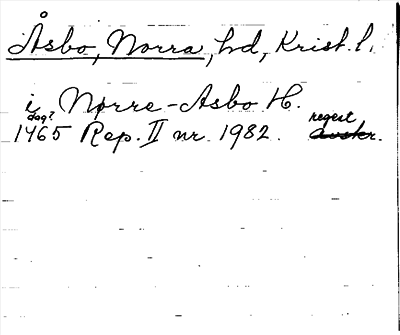 Åsbo, Norra, hd, Krist. l.
i Nørre-Asbo H.
dag?
1465 Rep. II nr. 1982. regest
avskr.